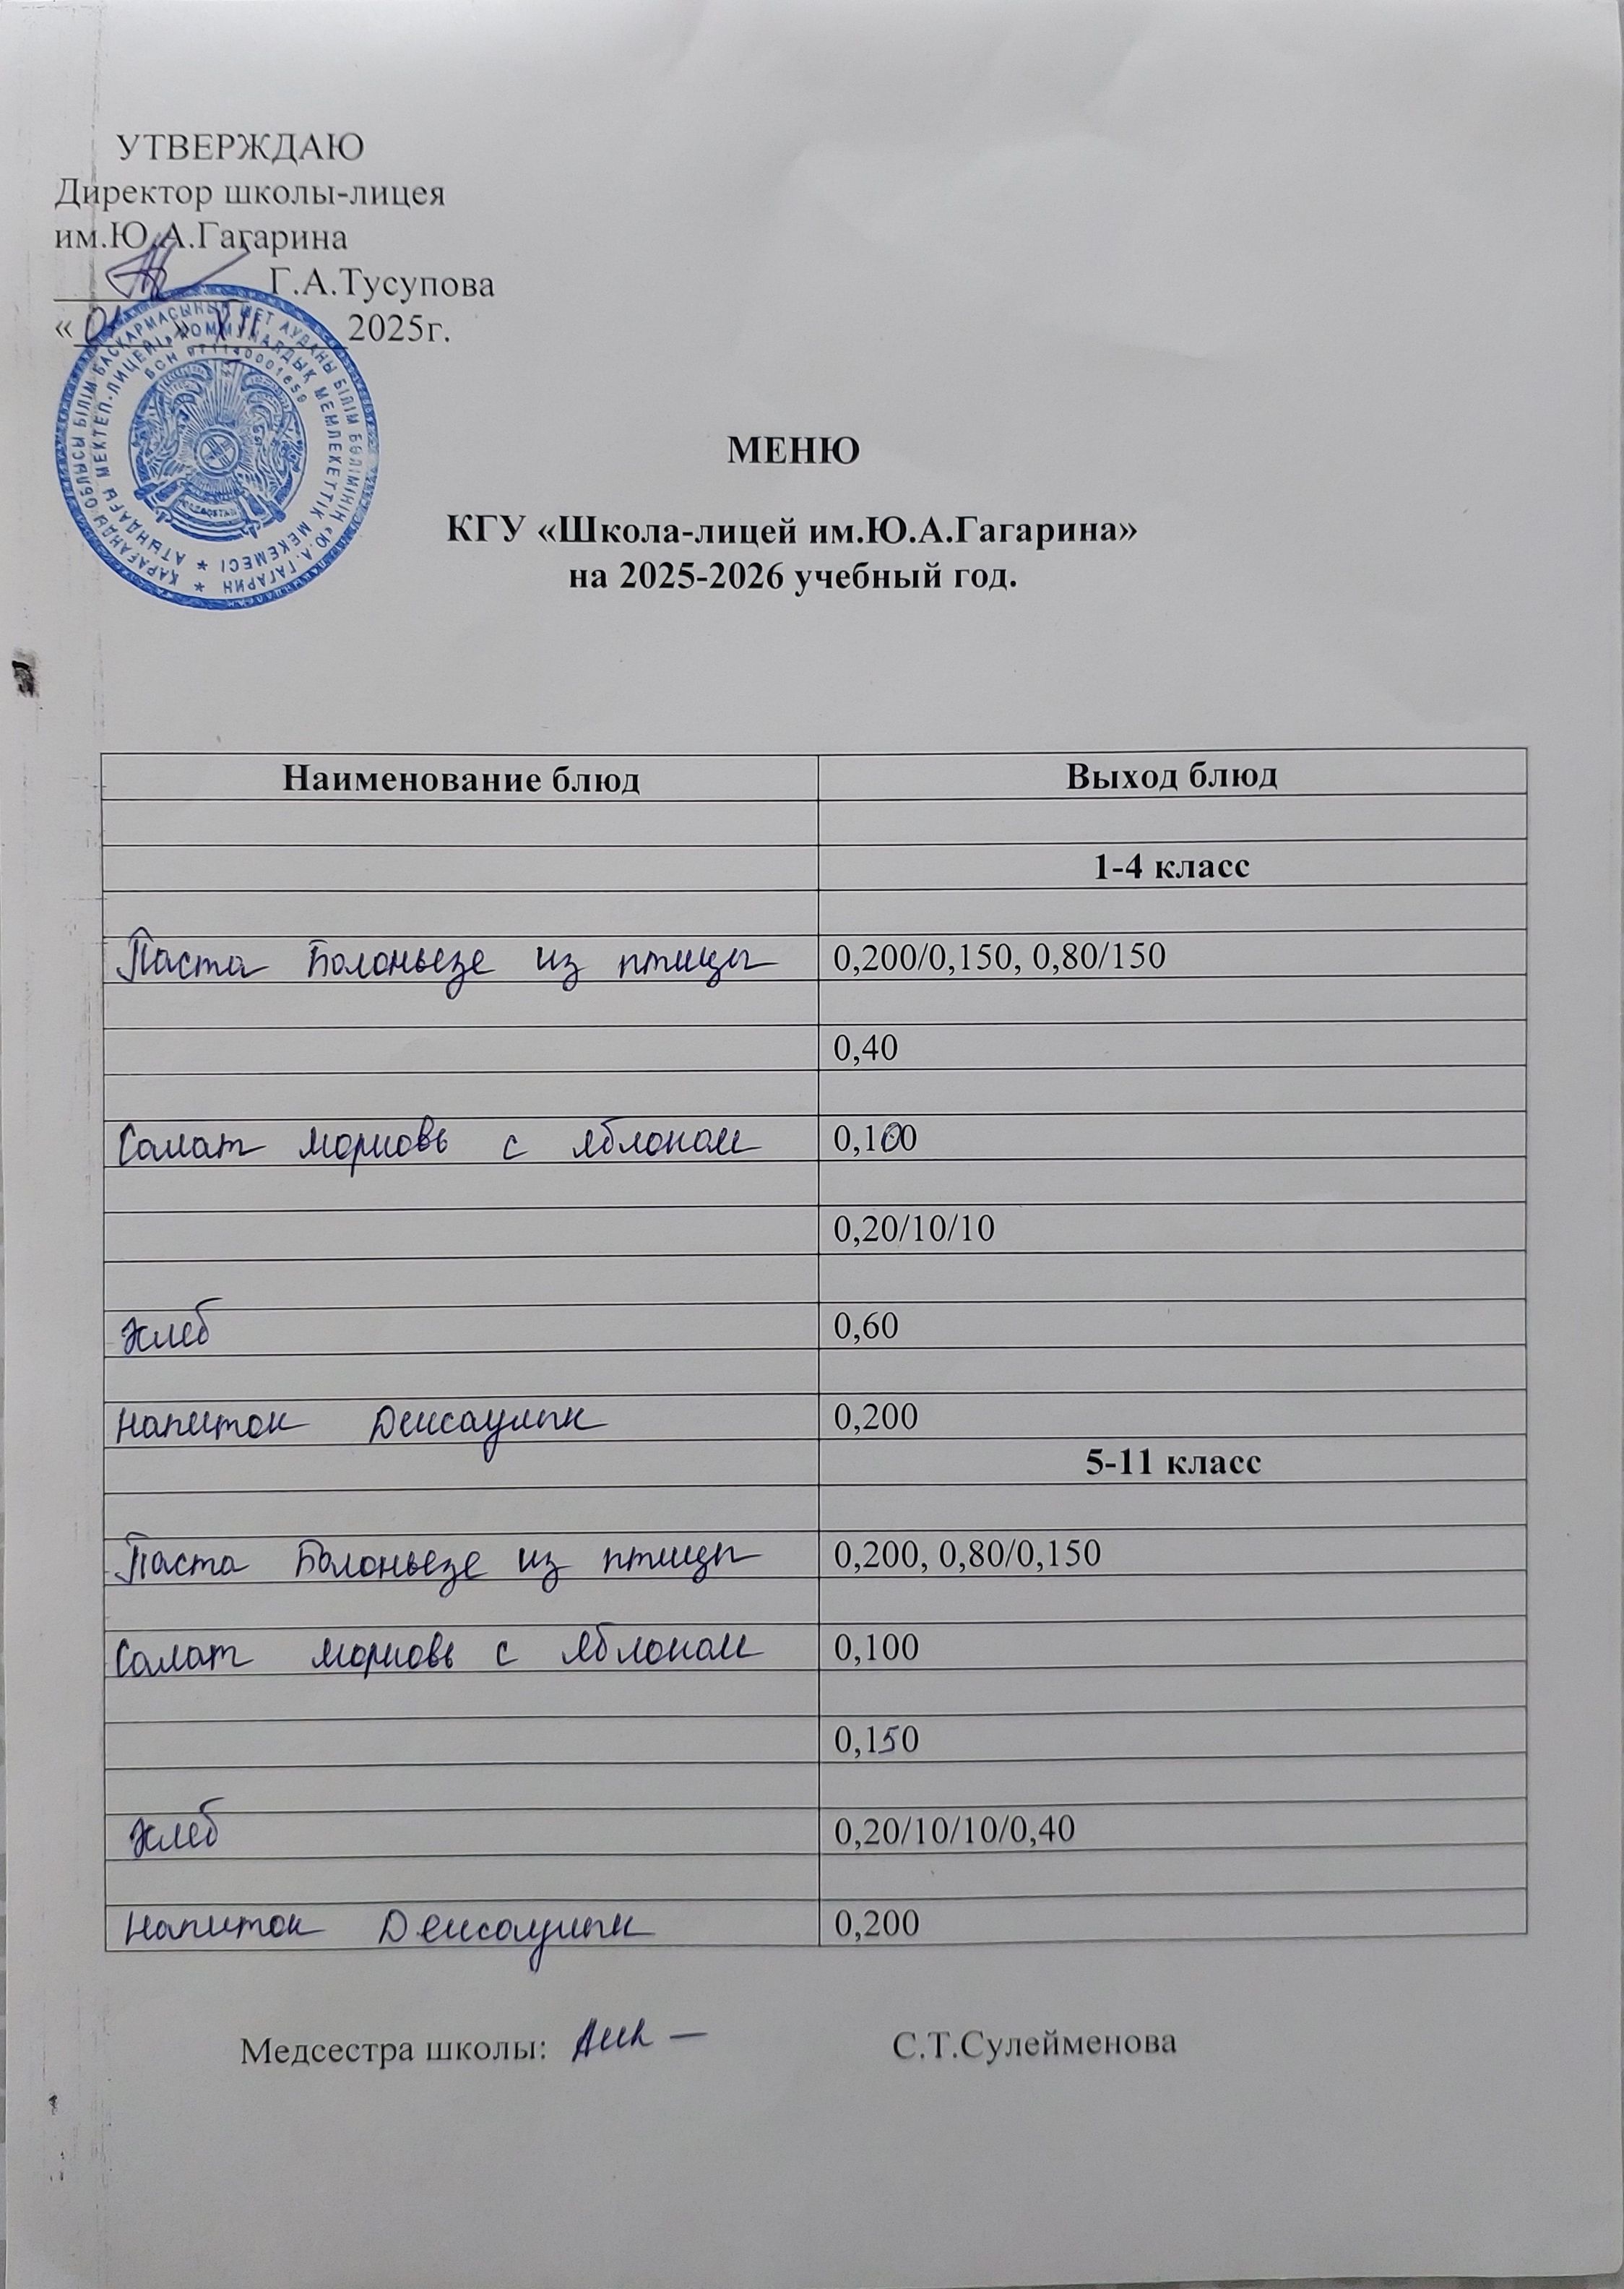 УТВЕРЖДАЮ
Директор школы-лицея
им.Ю.А.Гагарина
Г.А.Тусупова
«01» XII 2025г.
ҚАРАҒАНДЫ ОБЛЫСЫ БІЛІМ БАСҚАРМАСЫНЫҢ ШЕТ АУДАНЫ БІЛІМ БӨЛІМІНІҢ «Ю.А. ГАГАРИН
АТЫНДАҒЫ МЕКТЕП-ЛИЦЕЙІ» КОММУНАЛДЫҚ МЕМЛЕКЕТТІК МЕКЕМЕСІ
МЕНЮ
КГУ «Школа-лицей им.Ю.А.Гагарина»
на 2025-2026 учебный год.
Наименование блюд Выход блюд
1-4 класс
Паста Болоньезе из птицы 0,200/0,150, 0,80/150
0,40
Салат морковь с яблоком 0,100
0,20/10/10
Хлеб 0,60
Напиток Денсаулык 0,200
5-11 класс
Паста Болоньезе из птицы 0,200, 0,80/0,150
Салат морковь с яблоком 0,100
0,150
Хлеб 0,20/10/10/0,40
Напиток Денсаулык 0,200
Медсестра школы: С.Т.Сулейменова